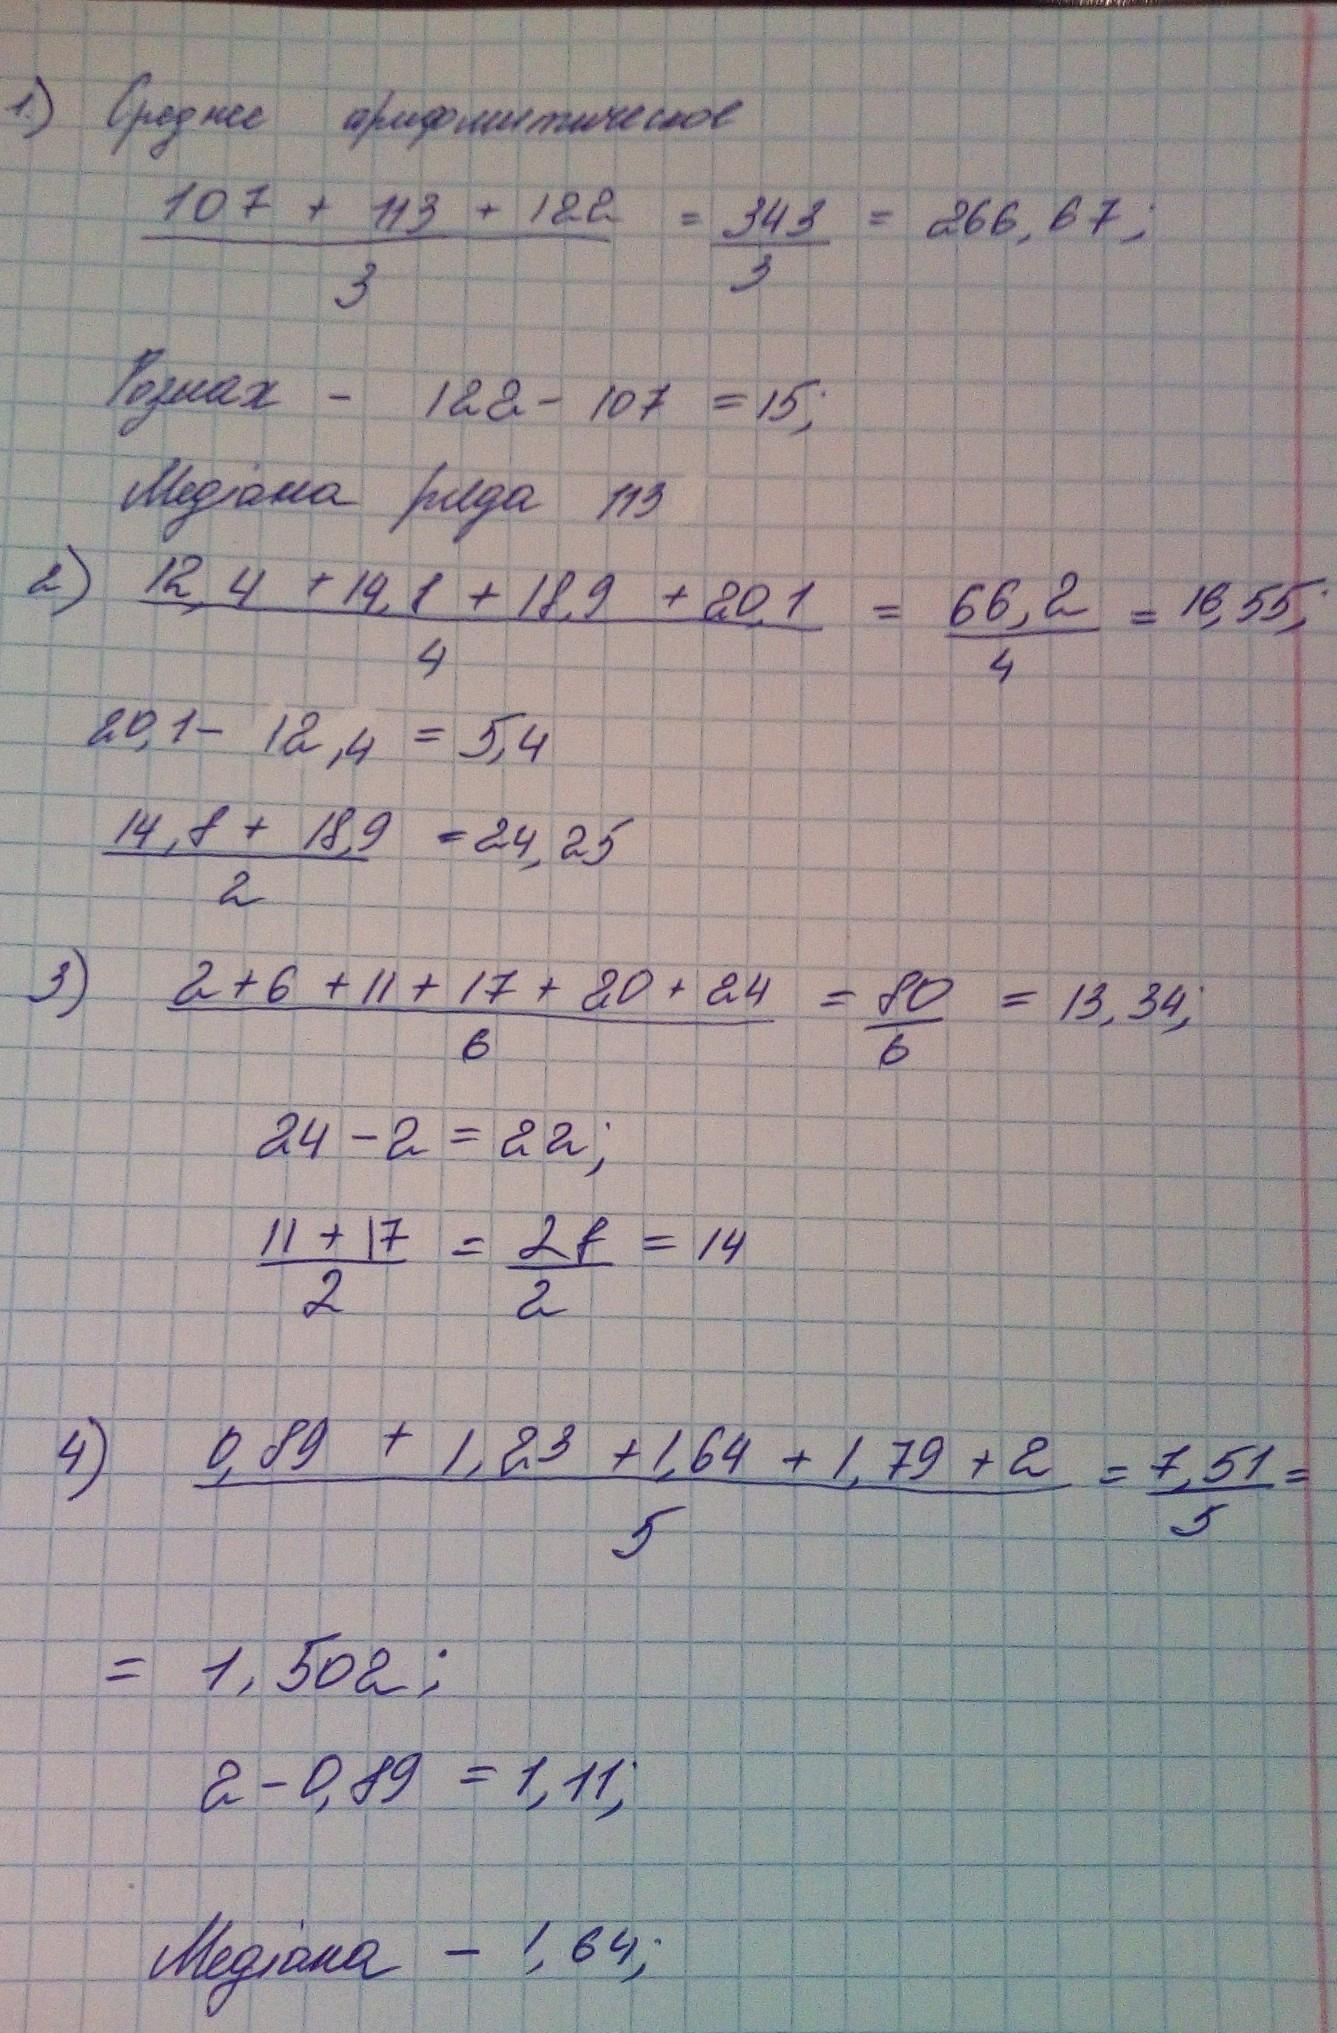 1.) Среднее арифметическое
107 + 113 + 122 / 3 = 343 / 3 = 266,67;
Розмах - 122 - 107 = 15;
Медіана ряда 113
2) 12,4 + 14,8 + 18,9 + 20,1 / 4 = 66,2 / 4 = 16,55;
20,1 - 12,4 = 5,4
14,8 + 18,9 / 2 = 24,25
3) 2 + 6 + 11 + 17 + 20 + 24 / 6 = 80 / 6 = 13,34;
24 - 2 = 22;
11 + 17 / 2 = 28 / 2 = 14
4) 0,89 + 1,23 + 1,64 + 1,79 + 2 / 5 = 7,51 / 5 =
= 1,502;
2 - 0,89 = 1,11;
Медіана - 1,64;